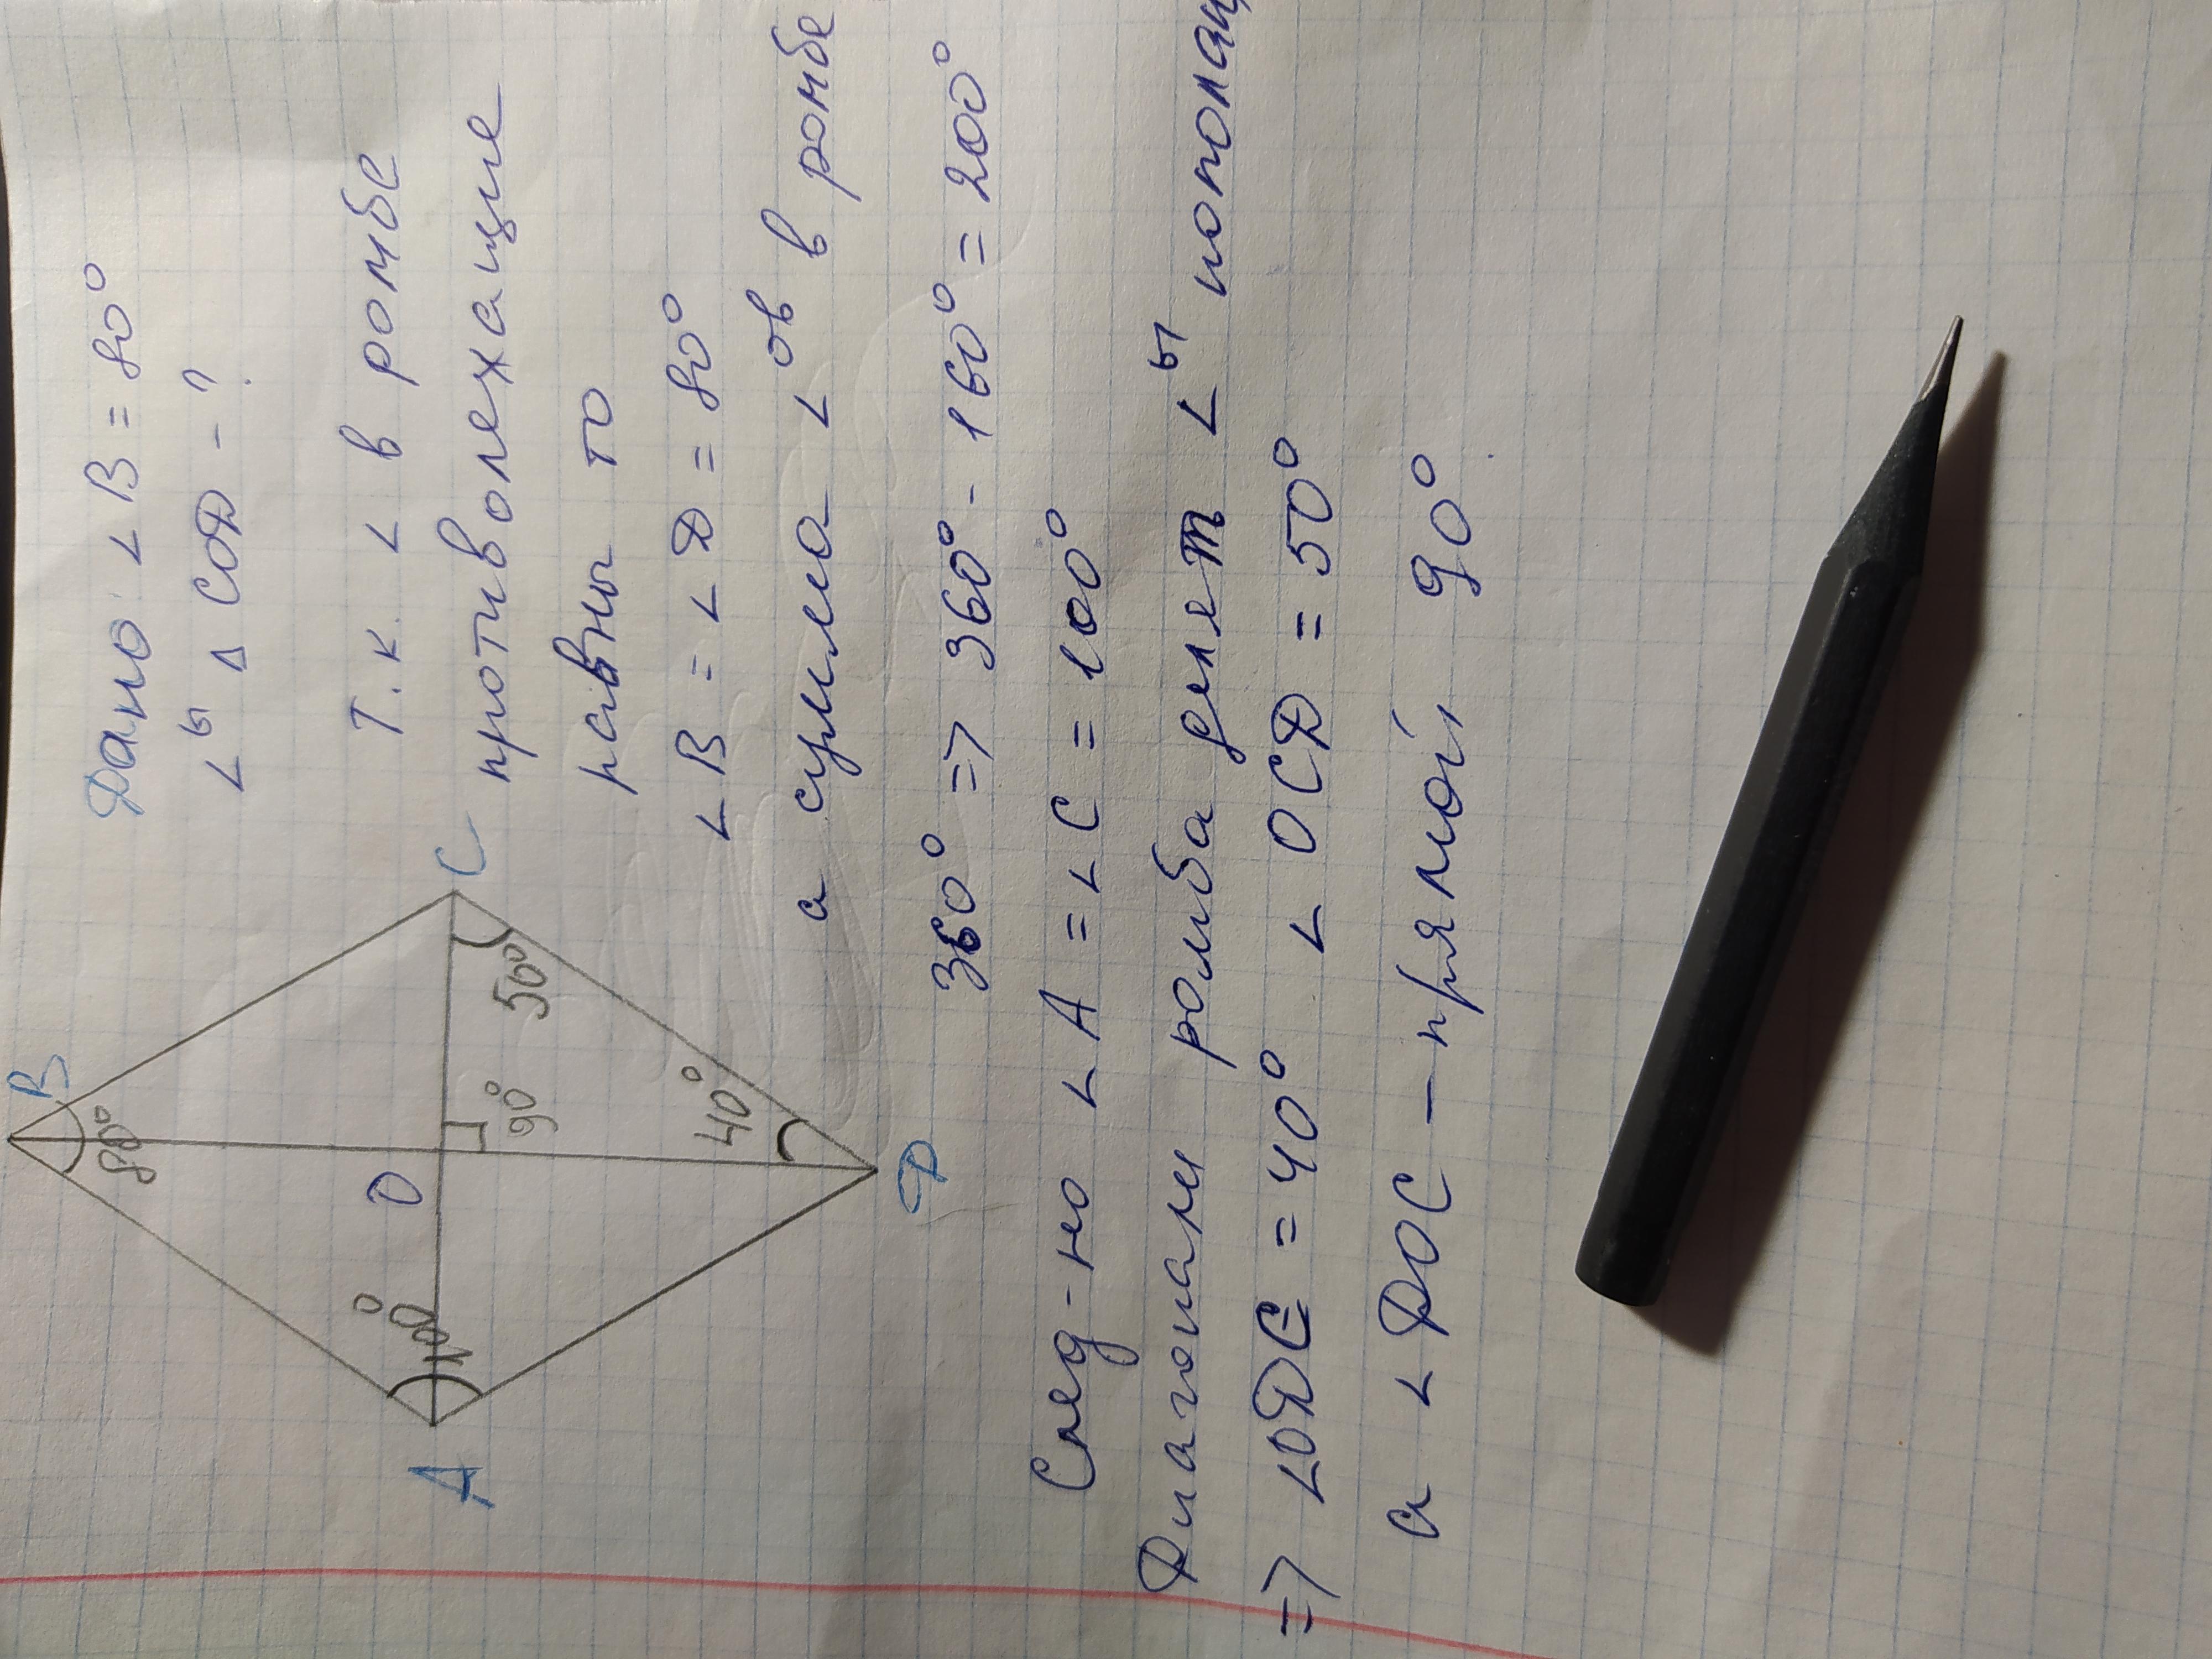 Дано: ∠B = 80°
∠ы Δ COD - ?
Т.к. ∠ в ромбе
противолежащие
равны то
∠B = ∠D = 80°
а сумма ∠ов в ромбе
360° => 360° - 160° = 200°
След-но ∠A = ∠C = 100°
Диагонали ромба делят ∠ы пополам
=> ∠ODC = 40° ∠OCD = 50°
а ∠DOC - прямой 90°
B
80°
A
100°
O
C
50°
90°
40°
D